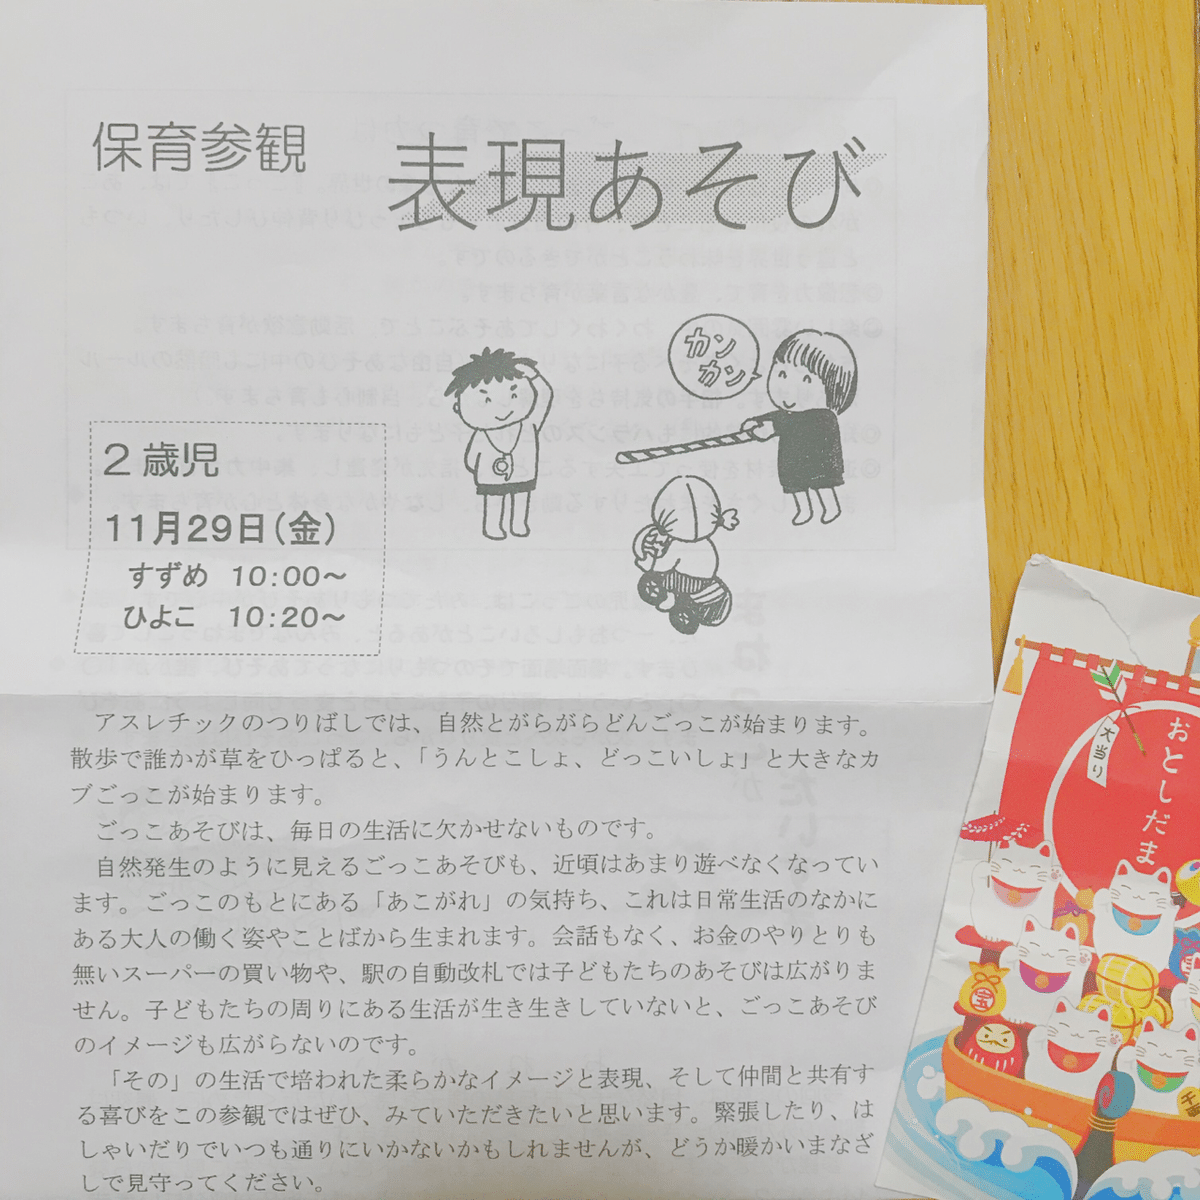 保育参観
表現あそび
カン
カン
2歳児
11月29日(金)
すずめ 10:00～
ひよこ 10:20～
アスレチックのつりばしでは、自然とがらがらどんごっこが始まります。
散歩で誰かが草をひっぱると、「うんとこしょ、どっこいしょ」と大きなカ
ブごっこが始まります。
ごっこあそびは、毎日の生活に欠かせないものです。
自然発生のように見えるごっこあそびも、近頃はあまり遊べなくなってい
ます。ごっこのもとにある「あこがれ」の気持ち、これは日常生活のなかに
ある大人の働く姿やことばから生まれます。会話もなく、お金のやりとりも
無いスーパーの買い物や、駅の自動改札では子どもたちのあそびは広がりま
せん。子どもたちの周りにある生活が生き生きしていないと、ごっこあそび
のイメージも広がらないのです。
「その」の生活で培われた柔らかなイメージと表現、そして仲間と共有す
る喜びをこの参観ではぜひ、みていただきたいと思います。緊張したり、は
しゃいだりでいつも通りにいかないかもしれませんが、どうか暖かいまなざ
しで見守ってください。
大当り
おとしだま
宝